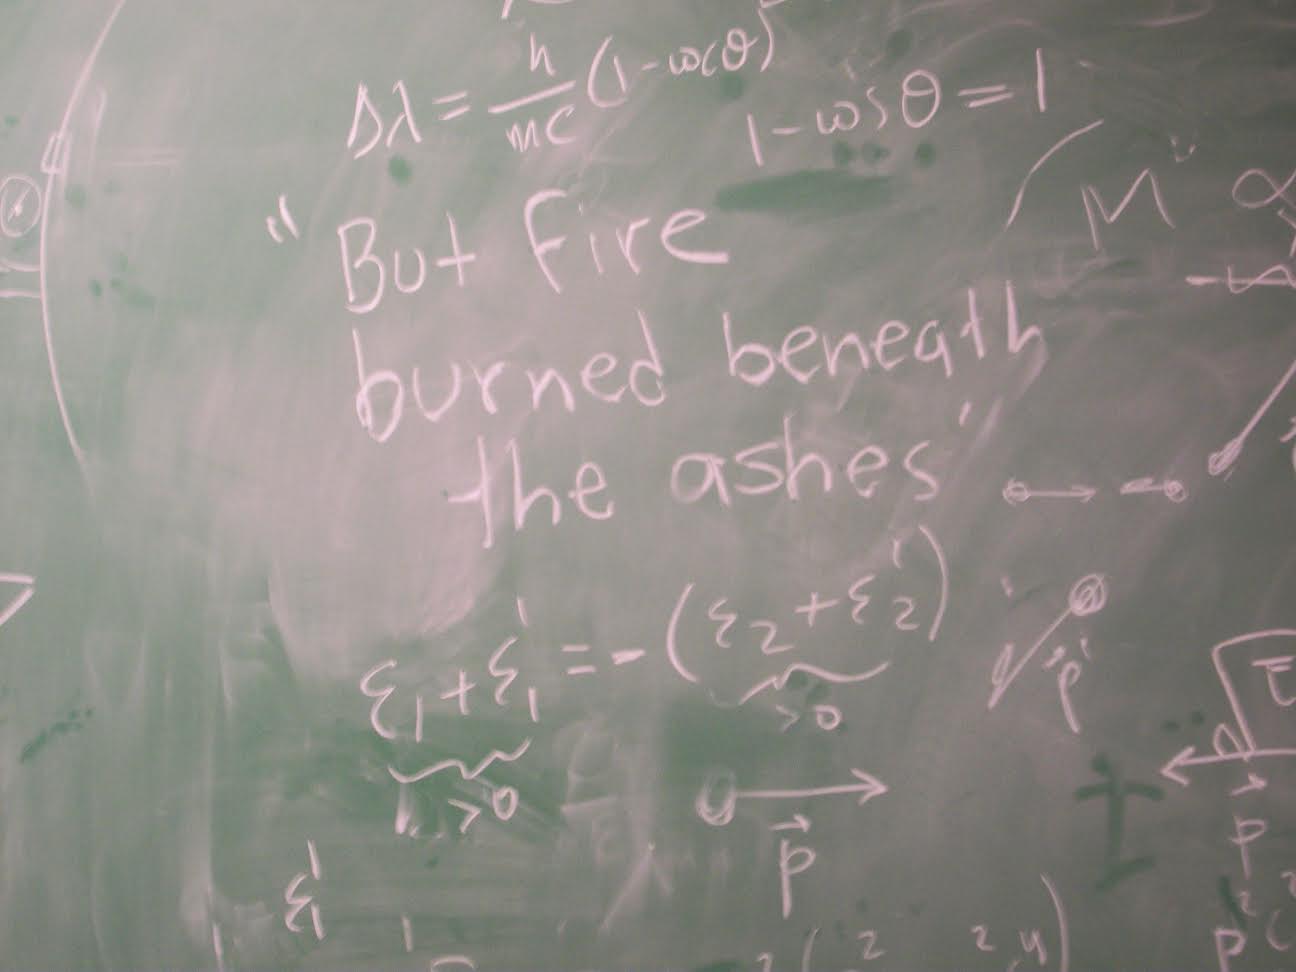 Δλ = h/mc (1-cosθ)
1-cosθ = 1
M α
"But Fire
burned beneath
the ashes"
ε₁+ε₁' = -(ε₂+ε₂')
>0 >0
p'
p⃗ p⃗
ε₁'